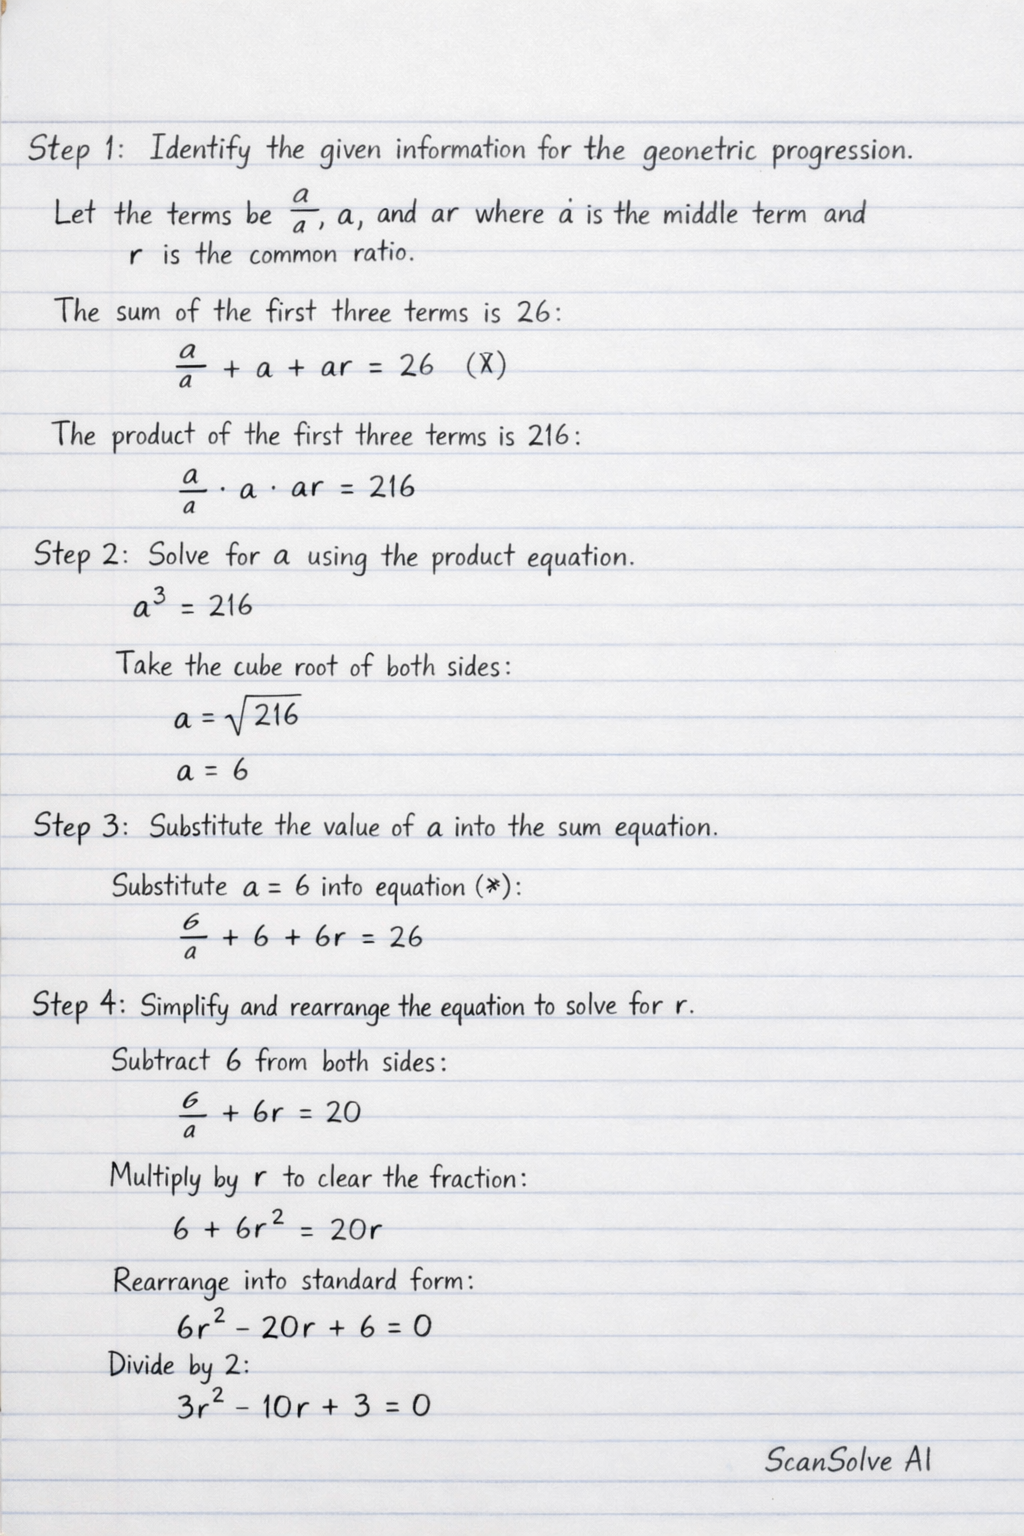 Step 1: Identify the given information for the geonetric progression.
Let the terms be a/a, a, and ar where ȧ is the middle term and
r is the common ratio.
The sum of the first three terms is 26:
a/a + a + ar = 26 (X̄)
The product of the first three terms is 216:
a/a · a · ar = 216
Step 2: Solve for a using the product equation.
a³ = 216
Take the cube root of both sides:
a = √216
a = 6
Step 3: Substitute the value of a into the sum equation.
Substitute a = 6 into equation (*):
6/a + 6 + 6r = 26
Step 4: Simplify and rearrange the equation to solve for r.
Subtract 6 from both sides:
6/a + 6r = 20
Multiply by r to clear the fraction:
6 + 6r² = 20r
Rearrange into standard form:
6r² - 20r + 6 = 0
Divide by 2:
3r² - 10r + 3 = 0
ScanSolve AI